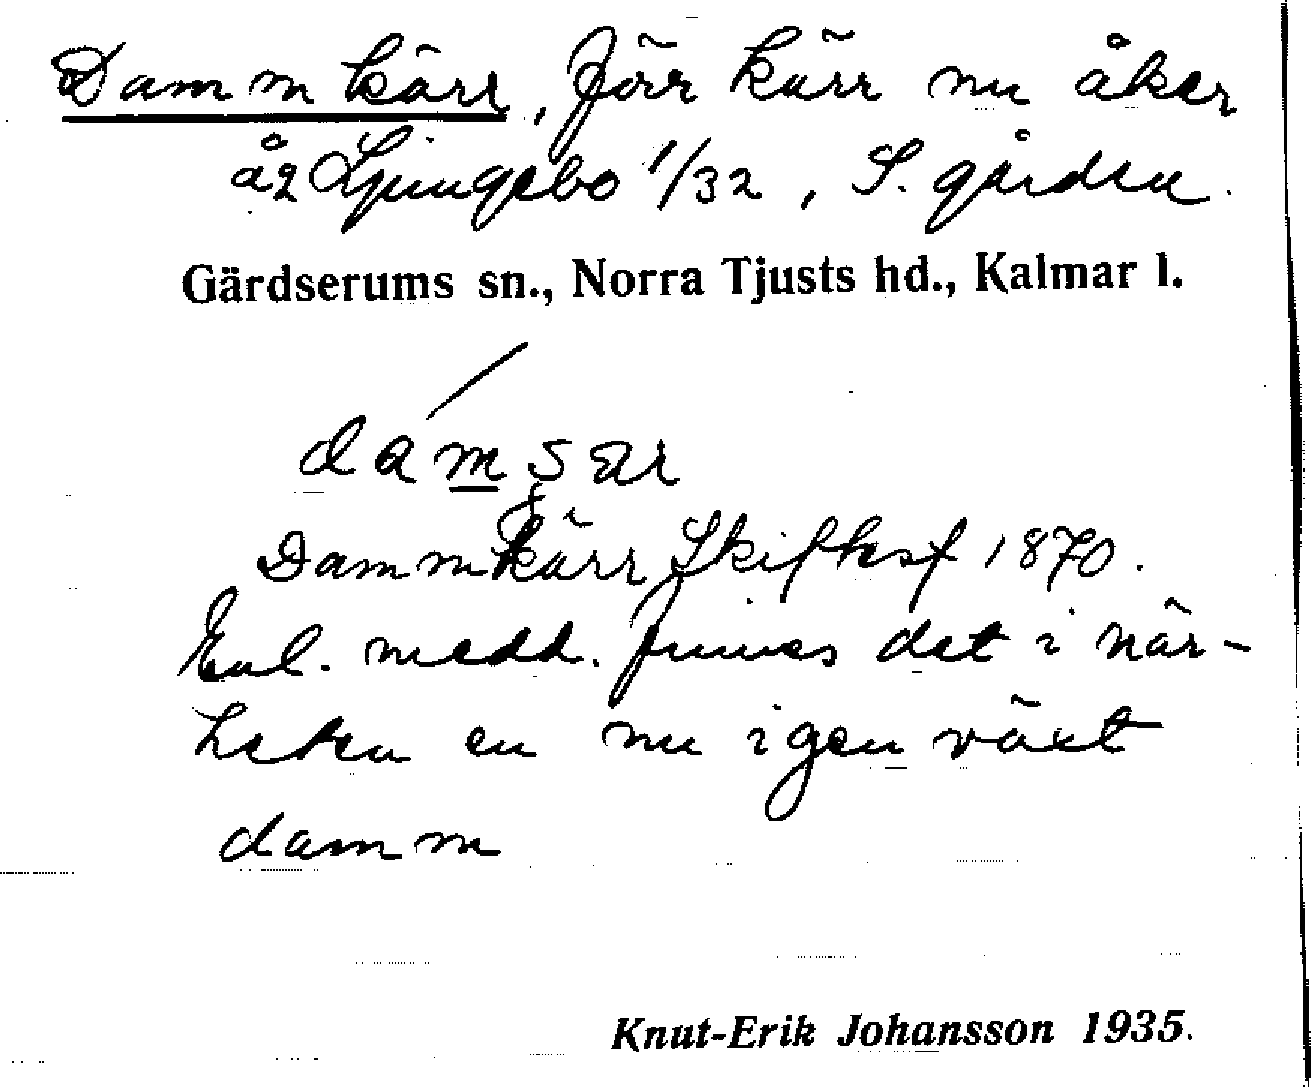 Dammkärr, förr kärr nu åker
åg Ljungebo 1/32, S. gården.
Gärdserums sn., Norra Tjusts hd., Kalmar l.
Dammkärr Skifksf 1870.
Enl. medd. finnes det i när-
heten en nu igenväxt
damm
Knut-Erik Johansson 1935.